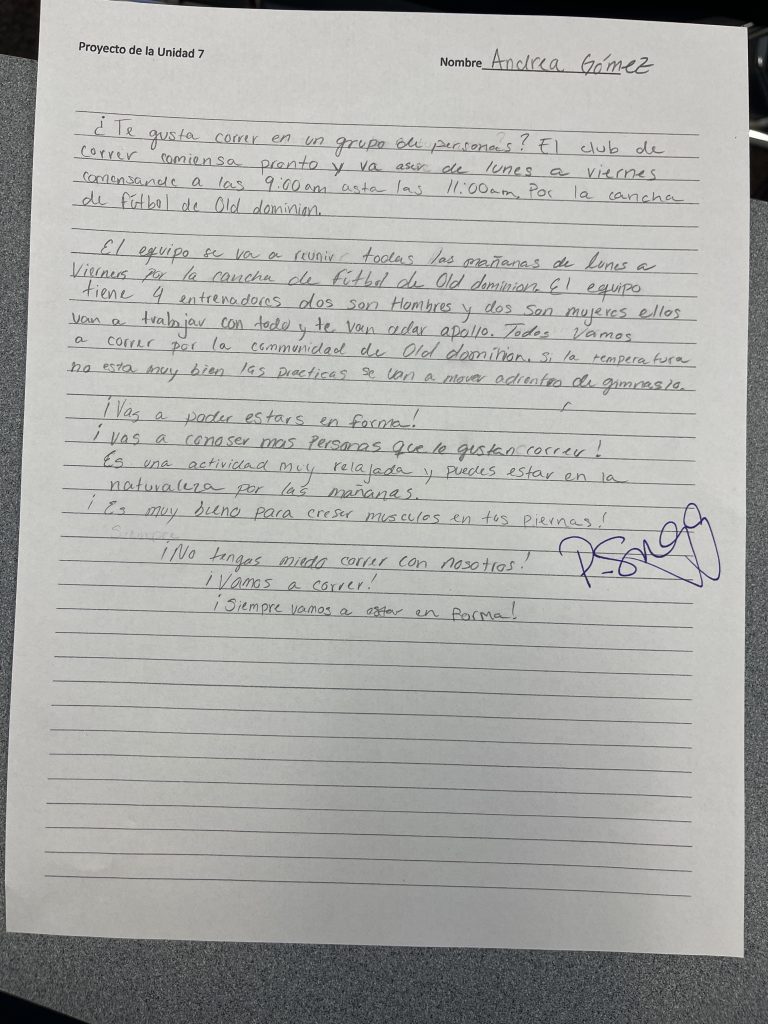 Proyecto de la Unidad 7
Nombre Andrea Gómez
¿Te gusta correr en un grupo de personas? El club de
correr comiensa pronto y va aser de lunes a viernes
comensande a las 9:00am asta las 11:00am. Por la cancha
de fútbol de Old dominion.
El equipo se va a reunir todas las mañanas de lunes a
Vierners por la cancha de fútbol de Old dominion. El equipo
tiene 4 entrenadores dos son Hombres y dos son mujeres ellos
van a trabajar con todo y te van adar apollo. Todos Vamos
a correr por la communidad de Old dominion. Si la temperatura
no esta muy bien las practicas se van a mover adrientro de gimnasio.
¡Vas a poder estars en forma!
¡Vas a conoser mas personas que le gustan correr!
Es una actividad muy relajada y puedes estar en la
naturaleza por las mañanas.
¡Es muy bueno para creser musculos en tus piernas!
Siempre
¡No tengas miedo correr con nosotros!
¡Vamos a correr!
¡Siempre vamos a estar en forma!